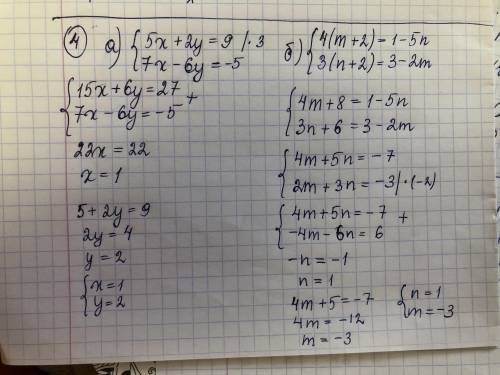 ④ а) { 5x + 2y = 9 |·3
7x - 6y = -5
{ 15x + 6y = 27
7x - 6y = -5 +
22x = 22
x = 1
5 + 2y = 9
2y = 4
y = 2
{ x = 1
y = 2
б) { 4(m+2) = 1 - 5n
3(n+2) = 3 - 2m
{ 4m + 8 = 1 - 5n
3n + 6 = 3 - 2m
{ 4m + 5n = -7
2m + 3n = -3 |·(-2)
{ 4m + 5n = -7 +
-4m - 6n = 6
-n = -1
n = 1
4m + 5 = -7
4m = -12
m = -3
{ n = 1
m = -3